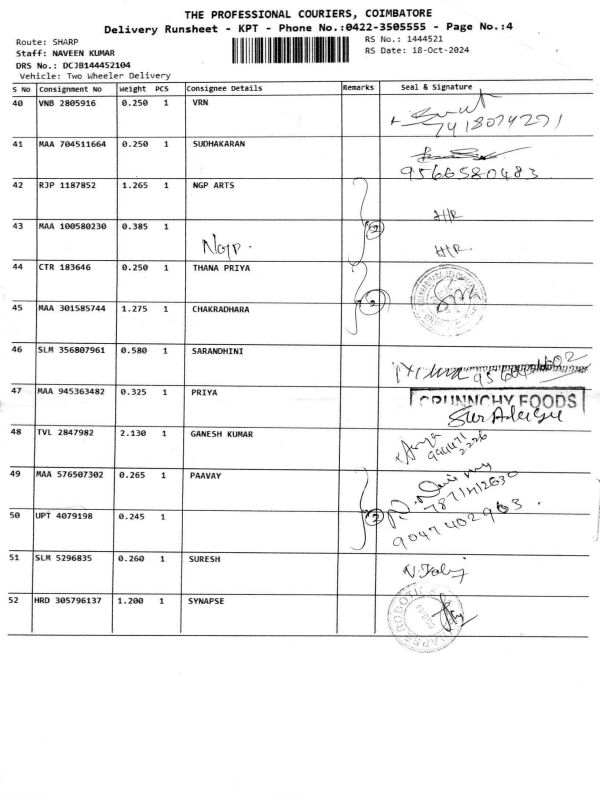 THE PROFESSIONAL COURIERS, COIMBATORE
Delivery Runsheet - KPT - Phone No.:0422-3505555 - Page No.:4
Route: SHARP
RS No.: 1444521
Staff: NAVEEN KUMAR
RS Date: 18-Oct-2024
DRS No.: DCJB144452104
Vehicle: Two Wheeler Delivery
S No Consignment No Weight PCS Consignee Details Remarks Seal & Signature
40 VNB 2805916 0.250 1 VRN
7418074271
41 MAA 704511664 0.250 1 SUDHAKARAN
9566580483
42 RJP 1187852 1.265 1 NGP ARTS
H/R
43 MAA 100580230 0.385 1
Ngp. 2 H/R
44 CTR 183646 0.250 1 THANA PRIYA
2
45 MAA 301585744 1.275 1 CHAKRADHARA
46 SLM 356807961 0.580 1 SARANDHINI
47 MAA 945363482 0.325 1 PRIYA
CRUNNCHY FOODS
48 TVL 2847982 2.130 1 GANESH KUMAR
49 MAA 576507302 0.265 1 PAAVAY
7871412630
50 UPT 4079198 0.245 1 2
9047402963
51 SLM 5296835 0.260 1 SURESH
52 HRD 305796137 1.200 1 SYNAPSE